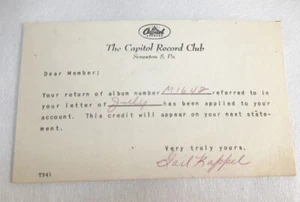 Capitol
The Capitol Record Club
Scranton 5, Pa.
Dear Member:
Your return of album number M1648 referred to in
your letter of July has been applied to your
account. This credit will appear on your next state-
ment.
Very truly yours,
Gail Kappel
T341